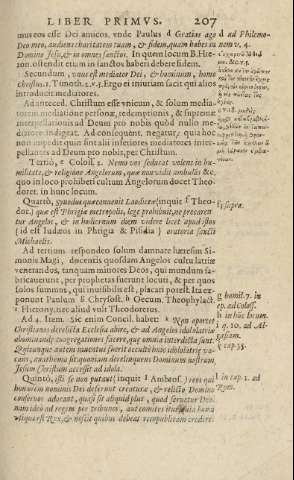 LIBER PRIMVS. 207
mu eos esse Dei amicos. vnde Paulus d Gratias ago
Deo meo, audiens charitatem tuam, & fidem, quam habes in
Domino Iesu, & in omnes sanctos. In quem locum B. Hie-
ron. ostendit etiam in sanctos haberi debere fidem.
Secundum, vnus est mediator Dei, & hominum, homo
Christus. 1. Timoth. 2. v. 5. Ergo ei iniuriam facit qui alios
introducit mediatores.
Ad anteced. Christum esse vnicum, & solum media-
torem mediatione personæ, redemptionis, & supremæ
interpellationis ad Deum pro nobis quod nullo me-
diatore indigeat. Ad consequent. negatur; quia hoc
non impedit quin sint alii inferiores mediatores inter-
pellantes ad Deum pro nobis, per Christum.
Tertiò, e Coloss. 2. Nemo vos seducat volens in hu-
militate, & religione Angelorum, quæ non vidit ambulans &c.
quo in loco prohiberi cultum Angelorum docet Theo-
doret. in hunc locum.
Quartò, synodus quæ conuenit Laodiceæ (inquit f Theo-
dor.) quæ est Phrigiæ metropolis, lege prohibuit, ne precarentur
Angelos, & in hodiernum diem videre licet apud illos
(id est Iudæos in Phrigia & Pisidia) oratoria sancti
Michaelis.
Ad tertium respondeo solum damnare hæresim Si-
monis Magi, docentis quosdam Angelos cultu latriæ
venerandos, tanquam minores Deos, qui mundum fa-
bricauerunt, per prophetas fuerunt locuti, & per quos
solos summus, qui inuisibilis est, placari potest. Ita ex-
ponunt Paulum g Chrysost. h Oecum. Theophylact.
i Hierony. nec aliud vult Theodoretus.
Ad 4. Item. Sic enim Concil. habet: k Non oportet
Christianos derelicta Ecclesia abire, & ad Angelos idololatriæ
abominandæ congregationes facere, quæ omnia interdicta sunt.
Quicunque autem inuentus fuerit occultè huic idololatriæ va-
cans, anathema sit: quoniam derelinquens Dominum nostrum
Iesum Christum accessit ad idola.
Quintò, isti se non putant (inquit l Ambros.) reos qui
honorem nominis Dei deferunt creaturæ, & relicto Domino
conseruos adorant, quasi sit aliquid plus, quod seruetur Deo.
nam ideò ad regem per tribunos, aut comites itur, quia homo
vtique est Rex, & nescit quibus debeat rempublicam credere.
d ad Philemo-
nem v. 4.
f supra.
g homil. 7. in
ep. ad Coloss.
h in hûc locum.
i q. 10. ad Al-
gasiam.
k cap. 35.
l in cap. 1. ad
Rom.